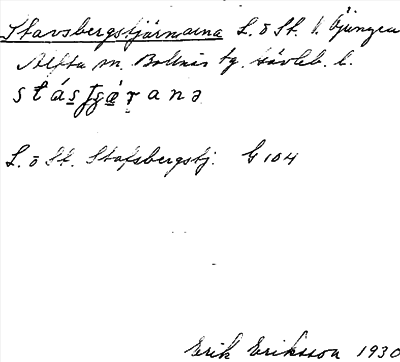 Stavsbergstjärnarna L. o St. V. Öjungen
Alfta sn. Bollnäs tg. Gävleb. l.
L. o St. Stafsbergstj. G 104
Erik Eriksson 1930